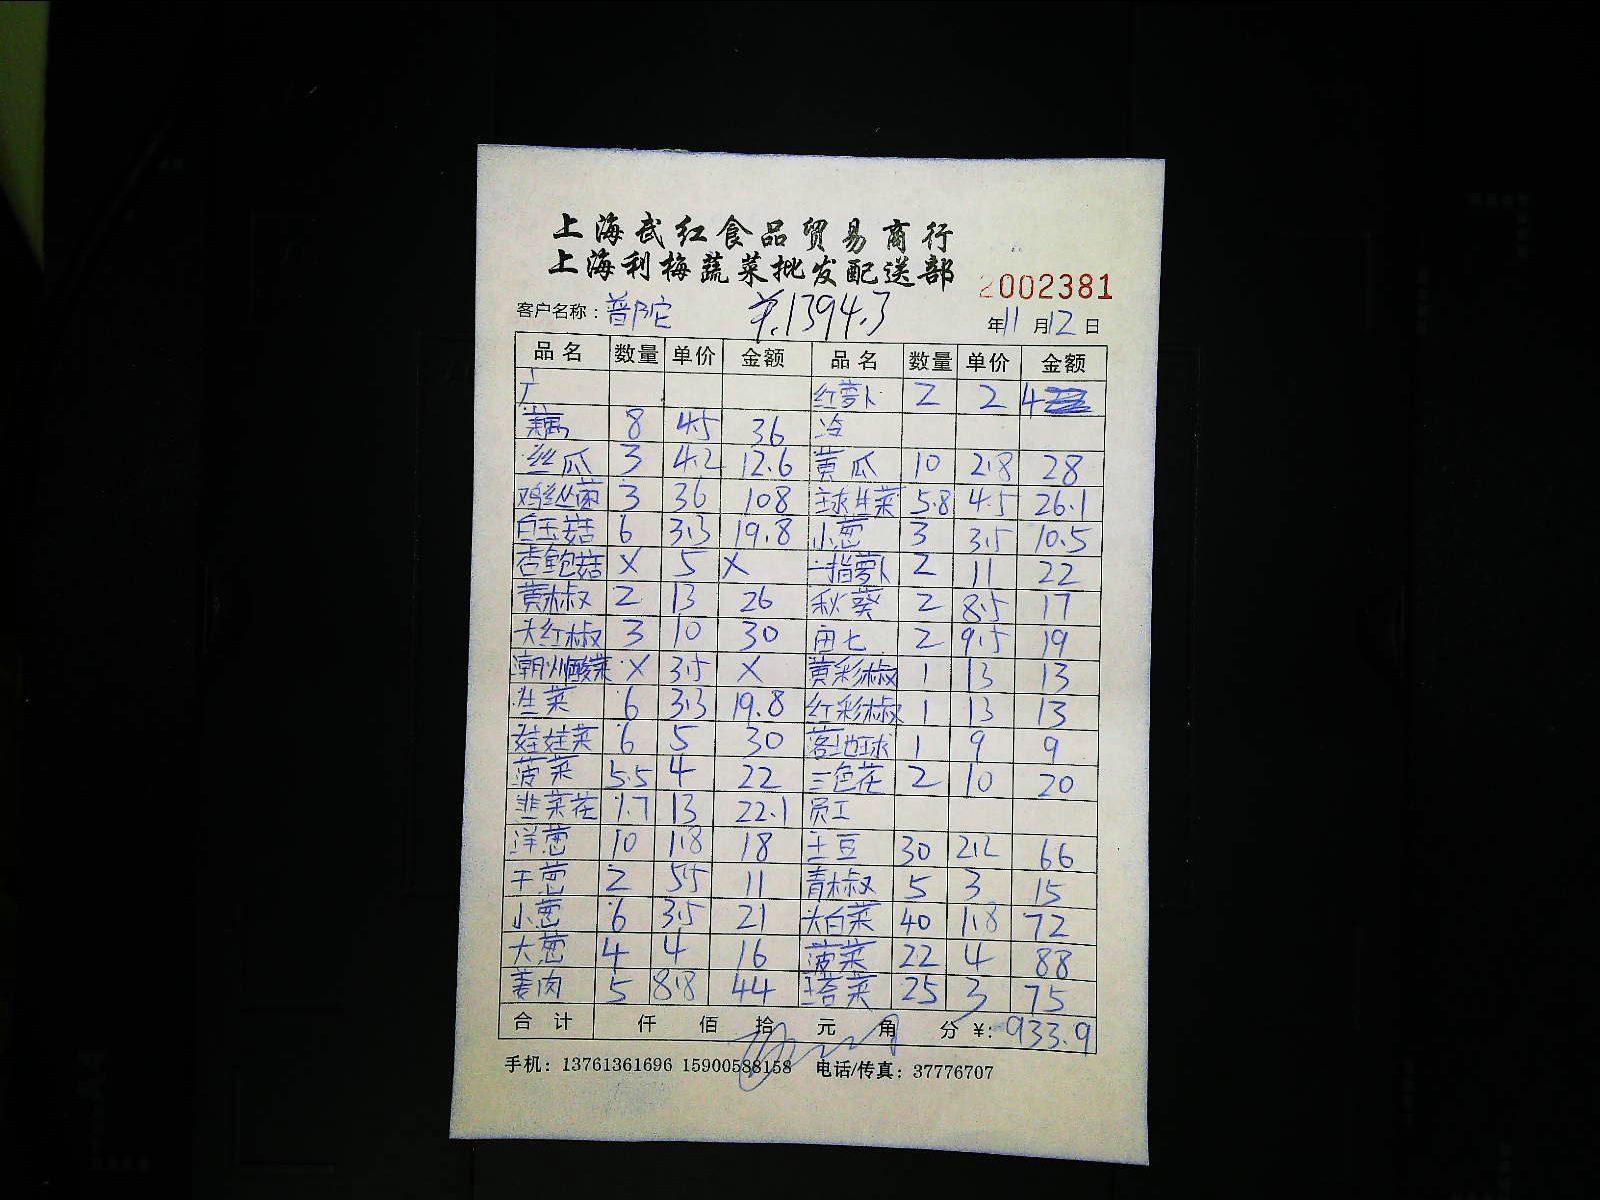 上海武红食品贸易商行
上海利梅蔬菜批发配送部
2002381
客户名称：普陀 ¥.1394.3 年11月12日
品名 数量 单价 金额 品名 数量 单价 金额
红萝卜 2 2 4
藕 8 4.5 36 冷
丝瓜 3 4.2 12.6 黄瓜 10 2.8 28
鸡纵菌 3 36 108 球生菜 5.8 4.5 26.1
白玉菇 6 3.3 19.8 小葱 3 3.5 10.5
杏鲍菇 X 5 X 一指萝卜 2 11 22
黄椒 2 13 26 秋葵 2 8.5 17
大红椒 3 10 30 2 9.5 19
潮州酸菜 X 3.5 X 黄彩椒 1 13 13
生菜 6 3.3 19.8 红彩椒 1 13 13
娃娃菜 6 5 30 落地球 1 9 9
菠菜 5.5 4 22 三色花 2 10 20
韭菜花 1.7 13 22.1 员工
洋葱 10 1.8 18 土豆 30 2.2 66
干葱 2 5.5 11 青椒 5 3 15
小葱 6 3.5 21 大白菜 40 1.8 72
大葱 4 4 16 菠菜 22 4 88
姜肉 5 8.8 44 塔菜 25 3 75
合计 仟 佰 拾 元 角 分 ¥: 933.9
手机：13761361696 15900588158 电话/传真：37776707